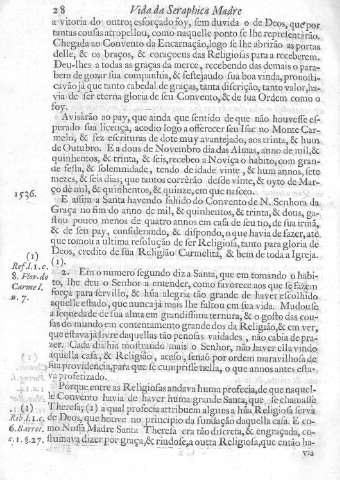 28 Vida da Seraphica Madre
a vitoria do outro; esforçado foy, sem duvida o de Deos, que por
tantas cousas atropellou, como naquelle ponto se lhe representárão.
Chegada ao Convento da Encarnação, logo se lhe abrirão as portas
delle, & os braços, & coraçoens das Religiosas para a receberem.
Deu-lhes a todas as graças da merce, recebendo das demais o para-
bem de gozar sua companhia, & festejando sua boa vinda, pronosti-
cavão já que tanto cabedal de graças, tanta discrição, tanto valor, ha-
via de ser eterna gloria de seu Convento, & de sua Ordem como o
foy.
Avisárão ao pay, que ainda que sentido de que não houvesse es-
perado sua licença, acodio logo a offerecer seu Isac no Monte Car-
melo, & fez escrituras de dote muy avantejado, aos trinta, & hum
de Outubro. E a dous de Novembro dia das Almas, anno de mil, &
quinhentos, & trinta, & seis, recebeo a Noviça o habito, com gran-
de festa, & solemnidade, tendo de idade vinte, & hum annos, sete
mezes, & seis dias; que tantos corrèrão desde vinte, & oyto de Mar-
ço de mil, & quinhentos, & quinze, em que nasceo.
1536.
E assim a Santa havendo sahido do Convento de N. Senhora da
Graça no fim do anno de mil, & quinhentos, & trinta, & dous, ga-
stou pouco menos de quatro annos em casa de seu tio, de sua irmã,
& de seu pay, considerando, & dispondo, o que havia de fazer, até
que tomou a ultima resolução de ser Religiosa, tanto para gloria de
Deos, credito de sua Religião Carmelita, & bem de toda a Igreja.
(1).
(1)
Ref. l. 1. c.
8. Flor. do
Carmel.
n. 7.
2. Em o numero segundo diz a Santa, que em tomando o habi-
to, lhe deu o Senhor a entender, como favorece aos que se fazem
força para servillo, & hũa alegria tão grande de haver escolhido
aquelle estado, que nunca já mais lhe faltou em sua vida. Mudouse
a sequedade de sua alma em grandissima ternura, & o gosto das cou-
sas do mundo em contentamento grande dos da Religião, & em ver,
que estava já livre daquellas tão penosas vaidades, não cabia de pra-
zer. Cada dia hia mostrando mais o Senhor, não haver ella vindo
aquella casa, & Religião, acaso, senão por ordem maravilhosa de
sua providencia, para que se cumprisse nella, o que annos antes esta-
va profetizado.
Porque entre as Religiosas andava huma profecia, de que naquel-
le Convento havia de haver huma grande Santa, que se chamasse
Theresa; (1) a qual profecia attribuem alguns a hũa Religiosa serva
de Deos, que houve no principio da fundação daquella casa. E co-
mo Nossa Madre Santa Theresa era tão discreta, & engraçada, co-
stumava dizer por graça, & rindose, a outra Religiosa, que então ha-
(1)
Rib. l. 1. c.
6. Barret.
c. 1. §. 27.
via